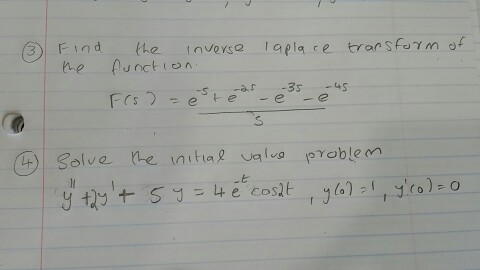 ③ Find the inverse laplace transform of
the function.
F(s) = e^-s + e^-2s - e^-3s - e^-4s / s
④ Solve the initial value problem
y'' + 2y' + 5y = 4e^-t cos2t , y(0) = 1 , y'(0) = 0